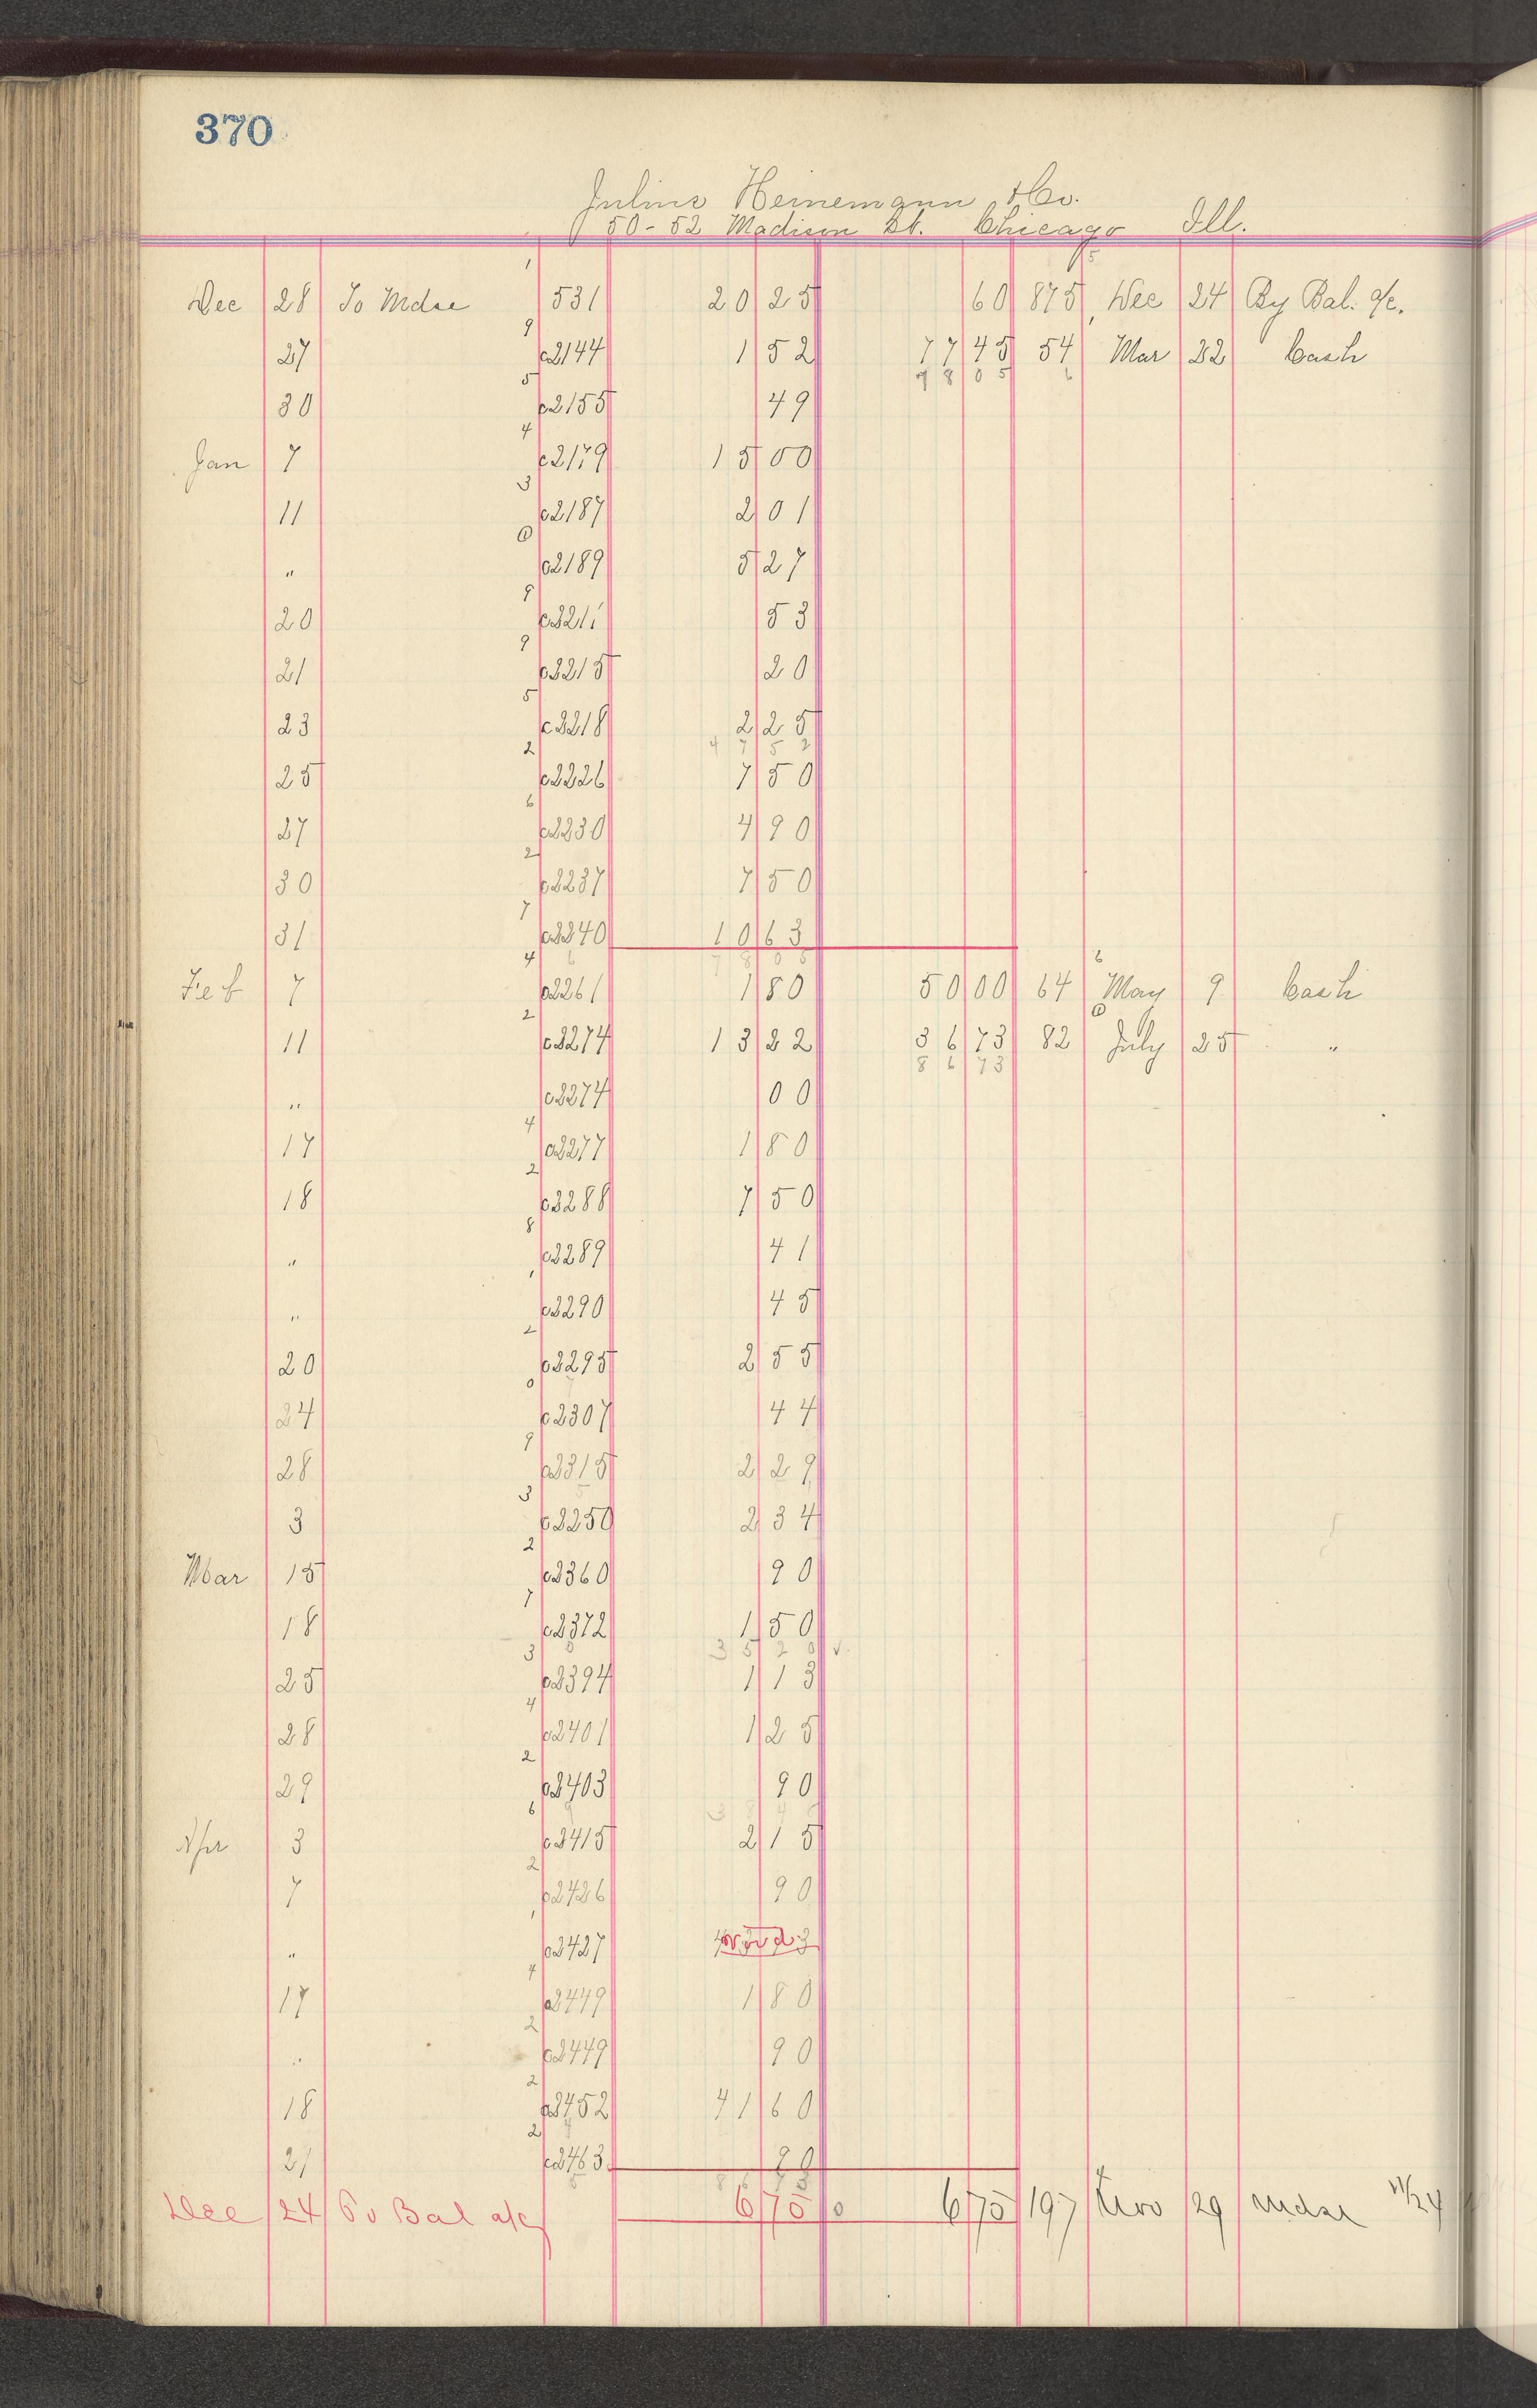 370
Julius Heinemann & Co.
50-52 Madison St. Chicago Ill.
Dec 28 To Mdse 531 20 25 60 875 Dec 24 By Bal. a/c.
27 c2144 1 52 77 45 54 Mar 22 Cash
78 05
30 c2155 49
Jan 7 c2179 15 00
11 c2187 2 01
" c2189 5 27
20 c2211 53
21 c2215 20
23 c2218 2 25
47 52
25 c2226 7 50
27 c2230 4 90
30 c2237 7 50
31 c2240 10 63
78 05
Feb 7 c2261 1 80 50 00 64 May 9 Cash
11 c2274 13 22 36 73 82 July 25 "
86 73
" c2274 00
17 c2277 1 80
18 c2288 7 50
" c2289 41
" c2290 45
20 c2295 2 55
24 c2307 44
28 c2315 2 29
3 c2350 2 34
Mar 15 c2360 90
18 c2372 1 50
25 c2394 1 13
28 c2401 1 25
29 c2403 90
Apr 3 c2415 2 15
7 c2426 90
" c2427 void
17 c2449 1 80
" c2449 90
18 c2452 41 60
21 c2463 90
86 73
Dec 24 To Bal a/c 6 75 6 75 197 Nov 29 Mdse 11/24